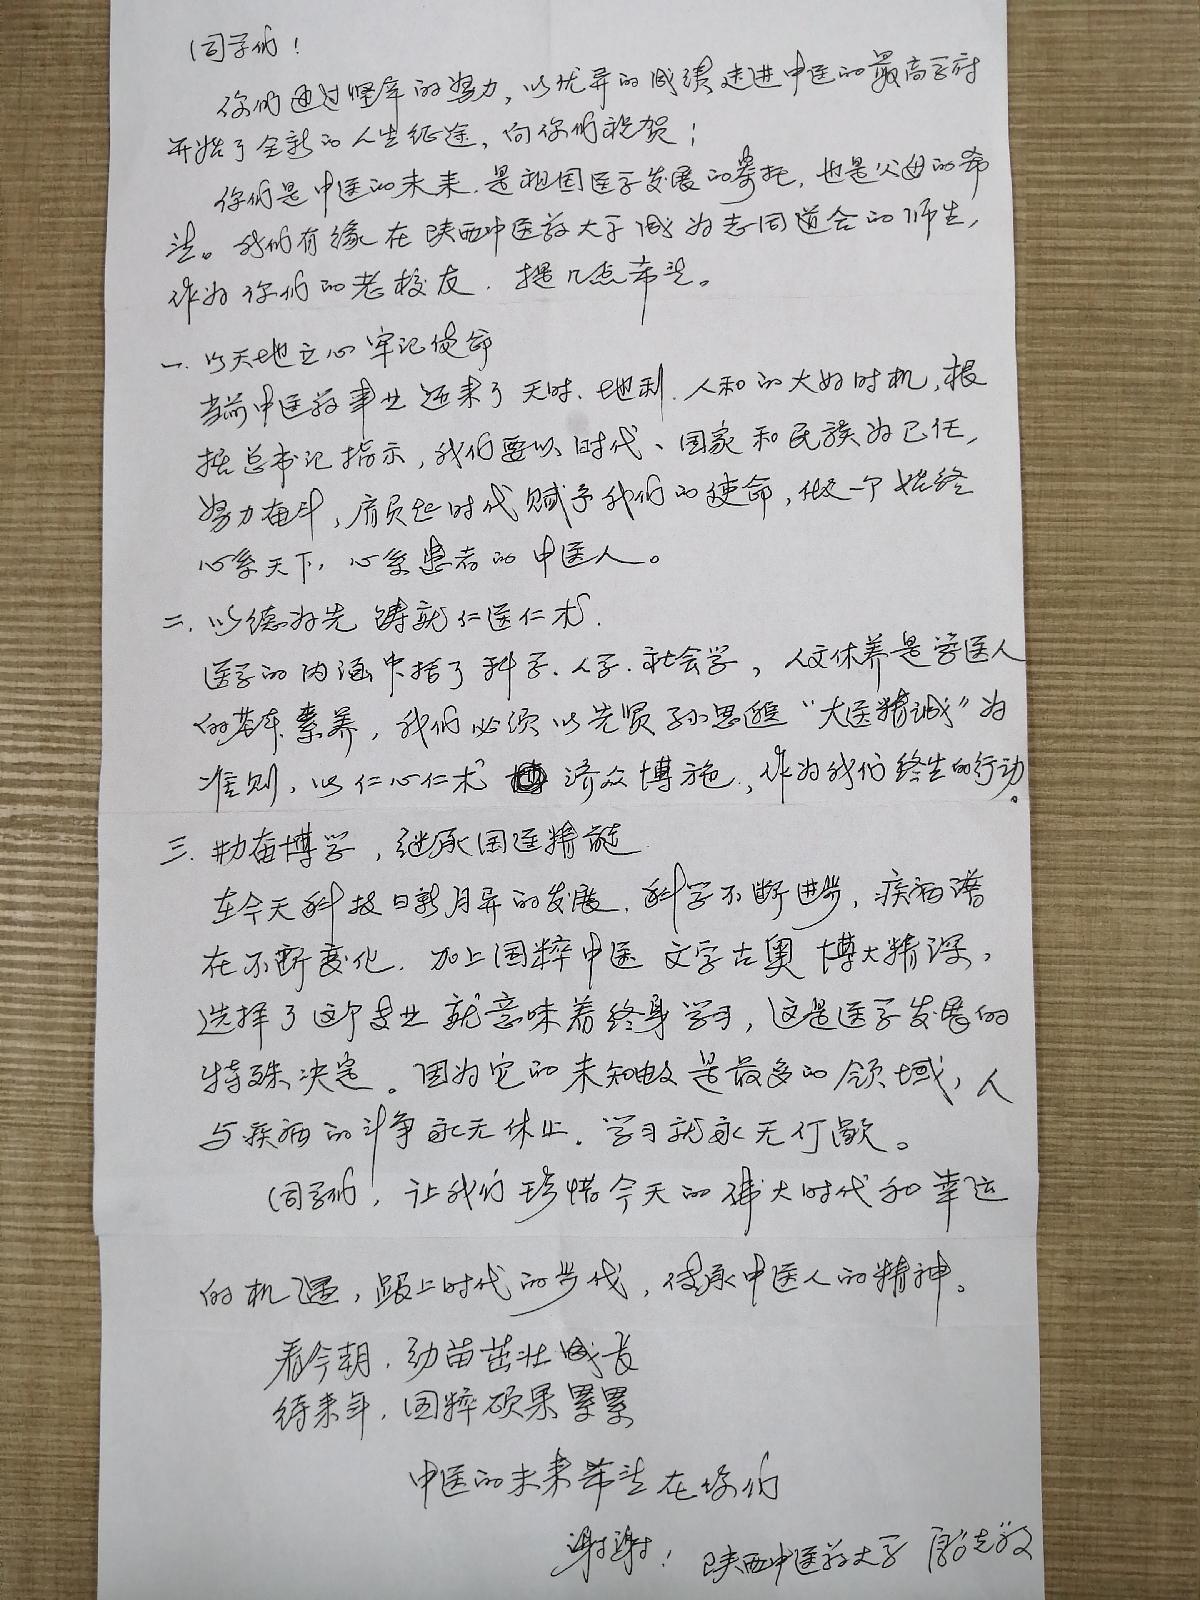 同学们！
你们通过坚辛的努力，以优异的成绩走进中医的最高学府
开始了全新的人生征途，向你们祝贺！
你们是中医的未来.是祖国医学发展的寄托，也是父母的希
望。我们有缘在陕西中医药大学成为志同道合的师生，
作为你们的老校友.提几点希望。
一.以天地立心牢记使命
当前中医药事业迎来了天时.地利.人和的大好时机，根
据总书记指示，我们要以时代、国家和民族为己任，
努力奋斗，肩负起时代赋予我们的使命，做一个始终
心系天下，心系患者的中医人。
二.以德为先 铸就仁医仁术.
医学的内涵中括了科学.人学.社会学，人文休养是学医人
的基本素养，我们必须以先贤孙思邈“大医精诚”为
准则，以仁心仁术 济众博施，作为我们终生的行动。
三.勤奋博学，继承国医精髓
在今天科技日新月异的发展.科学不断进步，疾病谱
在不断变化.加上国粹中医 文字古奥 博大精深，
选择了这个专业 就意味着终身学习，这是医学发展的
特殊决定。因为它的未知数是最多的领域，人
与疾病的斗争永无休止.学习就永无停歇。
同学们，让我们珍惜今天的伟大时代和幸运
的机遇，跟上时代的步伐，传承中医人的精神。
看今朝.幼苗茁壮成长
待来年，国粹硕果累累
中医的未来希望在你们
谢谢！ 陕西中医药大学